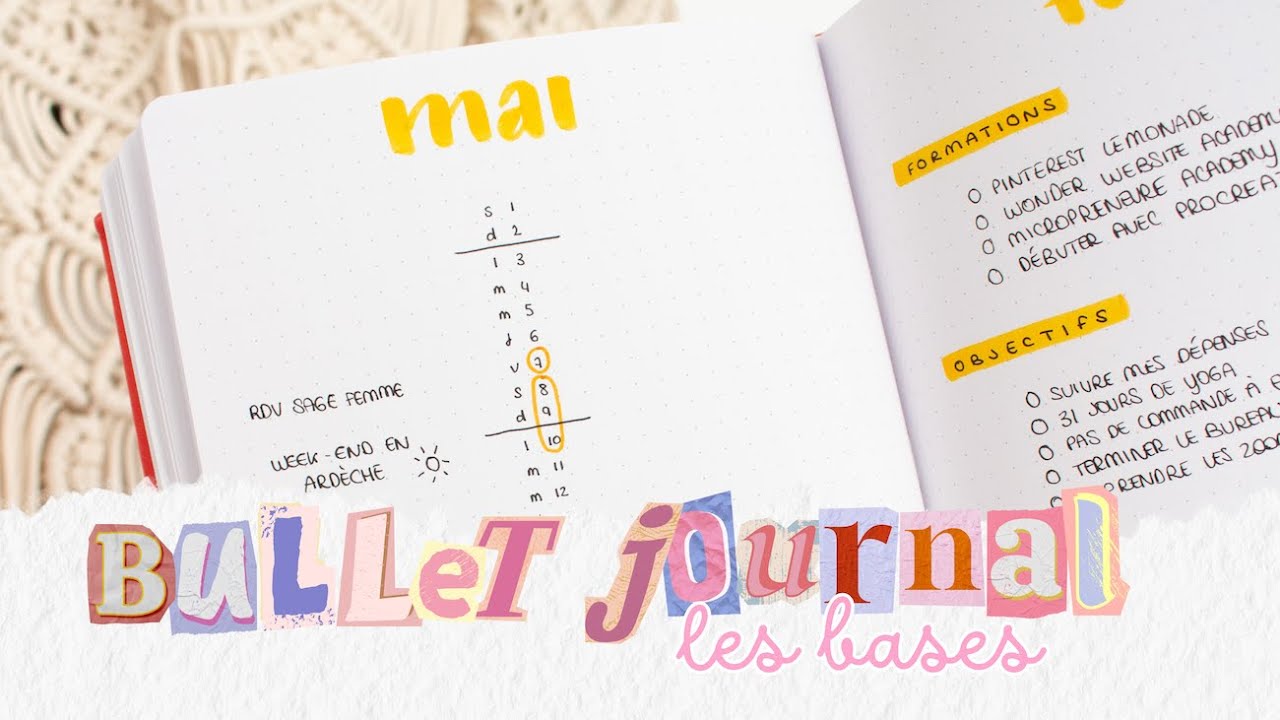 mai
s 1
d 2
l 3
m 4
m 5
j 6
v 7
s 8
d 9
l 10
m 11
m 12
RDV SAGE FEMME
WEEK-END EN
ARDÈCHE
FORMATIONS
PINTEREST LEMONADE
WONDER WEBSITE ACADEMY
MICROPRENEURE ACADEMY
DÉBUTER AVEC PROCREAT
OBJECTIFS
SUIVRE MES DÉPENSES
31 JOURS DE YOGA
PAS DE COMMANDE À
TERMINER LE BUREAU
LES
BULLET JOURNAL
les bases